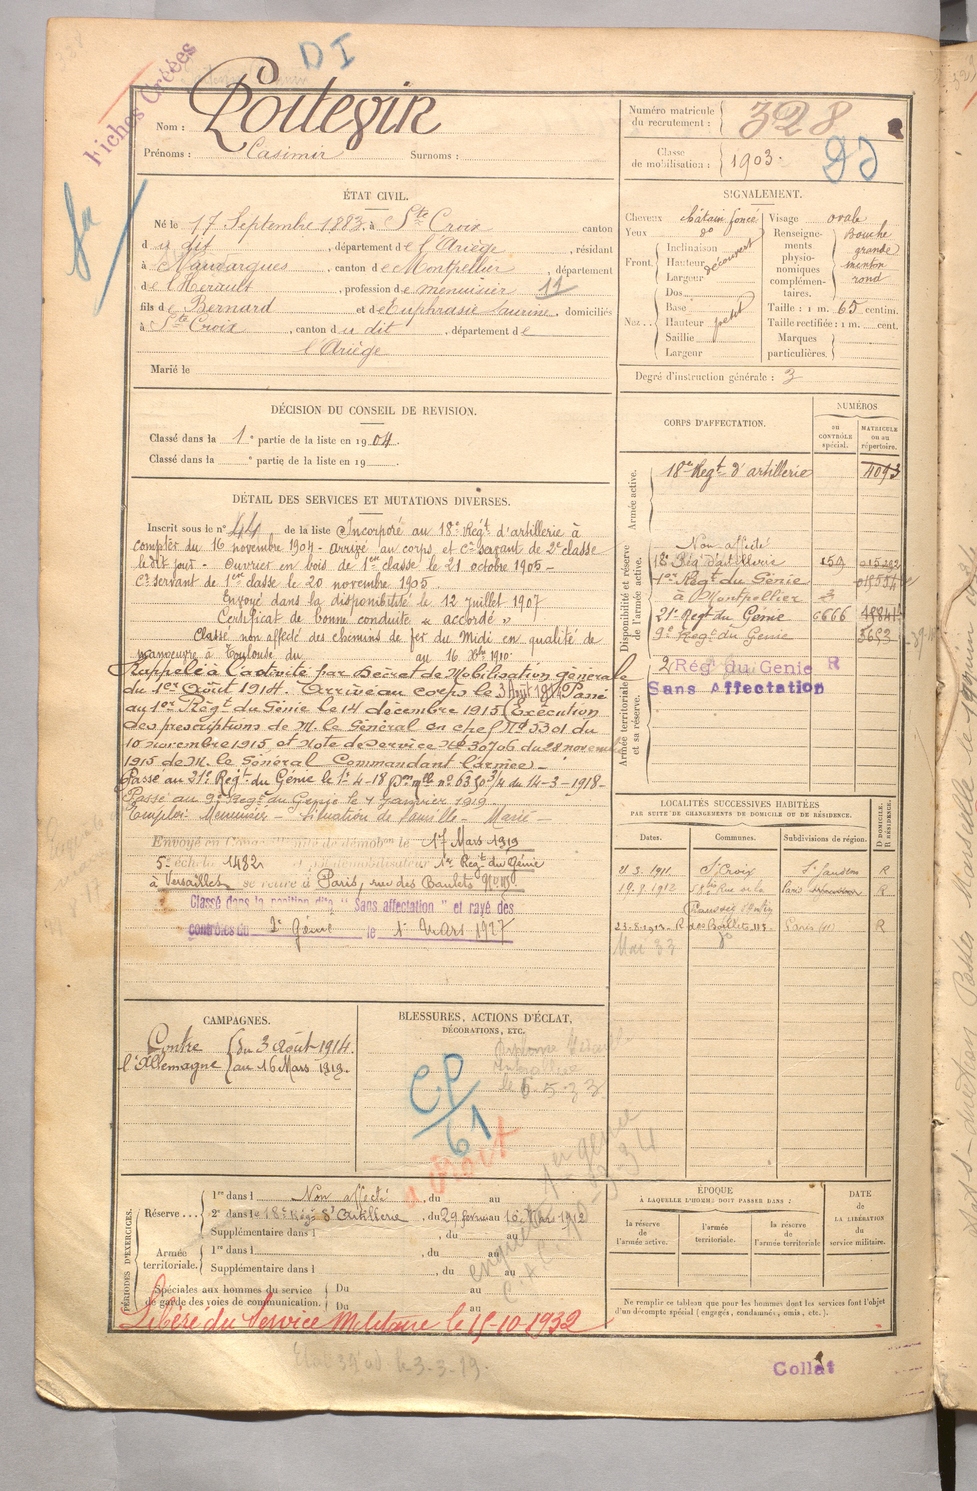 DI
Fiches Créées
Nom : Poitevin
Prénoms : Casimir Surnoms :
Numéro matricule du recrutement : 328
Classe de mobilisation : 1903
ÉTAT CIVIL.
Né le 17 Septembre 1883, à Ste Croix canton
du dit, département de l'Ariège, résidant
à , canton de Montpellier, département
de l'Hérault, profession de menuisier 11
fils de Bernard et de Euphrasie , domiciliés
à Ste Croix, canton du dit, département de
l'Ariège
Marié le
SIGNALEMENT.
Cheveux châtain foncé
Yeux do
Front. Inclinaison
Hauteur découvert
Largeur
Nez Dos
Base
Hauteur petit
Saillie
Largeur
Visage ovale
Renseignements physionomiques complémentaires. Bouche grande menton rond
Taille : 1 m. 65 centim.
Taille rectifiée : 1 m. cent.
Marques particulières.
Degré d'instruction générale : 3
DÉCISION DU CONSEIL DE REVISION.
Classé dans la 1e partie de la liste en 1904.
Classé dans la e partie de la liste en 19
DÉTAIL DES SERVICES ET MUTATIONS DIVERSES.
Inscrit sous le n° 44 de la liste Incorporé au 18e Régt d'artillerie à
compter du 16 novembre 1904 - arrivé au corps et ct servant de 2e classe
le dit jour - Ouvrier en bois de 1ere classe le 21 octobre 1905 -
Ct servant de 1ere classe le 20 novembre 1905.
Envoyé dans la disponibilité le 12 juillet 1907
Certificat de bonne conduite « accordé »
Classé non affecté des chemins de fer du Midi en qualité de
manœuvre à Toulouse du au 16 Xbre 1910
Rappelé à l'activité par Décret de Mobilisation générale
du 1er Août 1914. Arrivé au corps le 3 Août 1914 Passé
au 1er Régt du Génie le 14 décembre 1915 (Exécution
des prescriptions de M. le Général en chef No 5301 du
10 novembre 1915 et Note de service No 30706 du 28 novembre
1915 de M. le Général Commandant l'armée -
Passé au 21e Régt du Génie le 1er-4-18 du 14-3-1918-
Passé au 9e Régt du Génie le 7 janvier 1919
Emploi: Menuisier - Situation de famille - Marié -
Envoyé en le 17 Mars 1919
5e échelon 1482 1er Régt du Génie
à Versailles se retire à Paris, rue des Boulets
Classé dans la position dite "Sans affectation" et rayé des
contrôles du 2e Génie le 1er Mars 1927
CORPS D'AFFECTATION.
NUMÉROS
AU CONTRÔLE SPÉCIAL.
MATRICULE OU AU RÉPERTOIRE.
Armée active.
18e Régt d'artillerie 4093
Disponibilité et réserve de l'armée active.
Non affecté
18e Rég. d'artillerie 159
1er Régt du Génie
à Montpellier
21e Regt du Génie 6666
9e Régt du Génie
Armée territoriale et sa réserve.
2 Rég du Genie R
Sans Affectation
LOCALITÉS SUCCESSIVES HABITÉES
PAR SUITE DE CHANGEMENTS DE DOMICILE OU DE RÉSIDENCE.
Dates. Communes. Subdivisions de région. D DOMICILE. R RÉSIDENCE.
21 3. 1911. Ste Croix St Gaudens R
19. 9. 1912 Paris R
23-8-1913 des Boulets 113 Paris (11) R
Mai 33
CAMPAGNES.
Contre l'Allemagne du 3 Août 1914
au 16 Mars 1919.
BLESSURES, ACTIONS D'ÉCLAT,
DÉCORATIONS, ETC.
le 6-5-33
CP/61
PÉRIODES D'EXERCICES.
Réserve... 1re dans l Non affecté, du au
2e dans le 18e Régt d'Artillerie, du 29 au 16 Mars 1912
Supplémentaire dans l , du au
Armée territoriale. 1re dans l , du au
Supplémentaire dans l , du au
Spéciales aux hommes du service de garde des voies de communication. Du au
Du au
ÉPOQUE
À LAQUELLE L'HOMME DOIT PASSER DANS :
la réserve de l'armée active. l'armée territoriale. la réserve de l'armée territoriale
DATE DE LA LIBÉRATION du service militaire.
Ne remplir ce tableau que pour les hommes dont les services font l'objet
d'un décompte spécial (engagés, condamnés, omis, etc.).
Libéré du Service Militaire le 15-10-1932
Collat